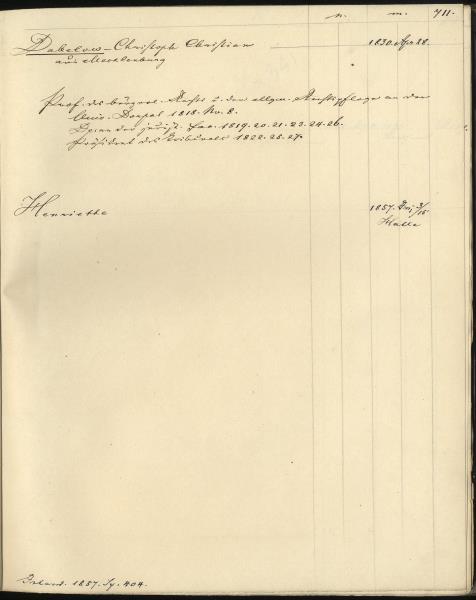 n. m. 711.
Dabelow - Christoph Christian 1830. Apr 28.
aus Mecklenburg
Prof. des bürgerl. Rechts u. der allgem. Rechtspflege an der
Univ. Dorpat 1818. Nv. 8.
Decan der jurist. Fac. 1819. 20. 21. 23. 24. 26.
Präsident des Tribunals 1822. 25. 27.
Henriette 1857. Jni 3/15
Halle
Inland. 1857. Sp. 404.